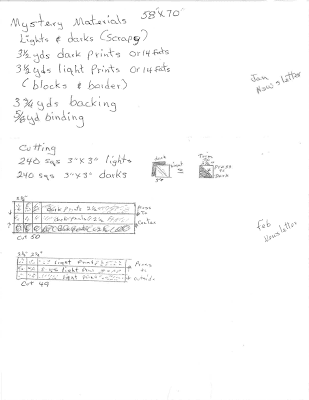 Mystery Materials 58"x70"
Lights & darks (Scrapy)
3½ yds dark prints or 14 Fats
3½ yds light Prints or 14 Fats
(blocks & border)
3¾ yds backing
5/8 yd binding
Jan
Newsletter
Cutting
240 sqs 3"x3" lights
240 sqs 3"x3" darks
dark
light
=
Trim
Press
to
Dark
2½"
dark prints 2½
dark prints 2½
Press
To
Center
Cut 50
Feb
Newsletter
2½" 2½"
light Prints
light Prints
Press
to
outside
Cut 49